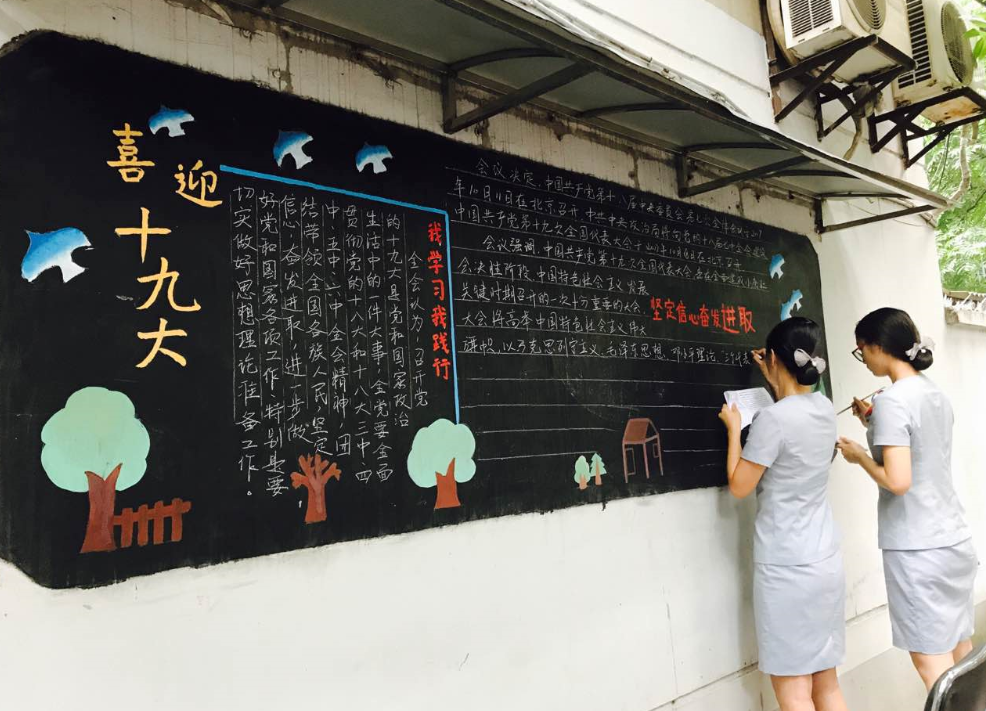 喜迎十九大
我学习我践行
全会认为,召开党
的十九大是党和国家政治
生活中的一件大事,全党要全面
贯彻党的十八大和十八大三中、四
中、五中、六中全会精神,团
结带领全国各族人民,坚定
信心、奋发进取,进一步做
好党和国家各项工作,特别是要
切实做好思想理论准备工作。
会议决定,中国共产党第十八届中央委员会第七次全体会议于2017
年10月11日在北京召开
中国共产党第十九次全国代表大会于2017年10月18日在北京召开
会议强调,中国共产党第十九次全国代表大会是在全面建成小康社
会决胜阶段、中国特色社会主义发展
关键时期召开的一次十分重要的大会
坚定信心奋发进取
大会将高举中国特色社会主义伟大
旗帜,以马克思列宁主义、毛泽东思想、邓小平理论、三个代表